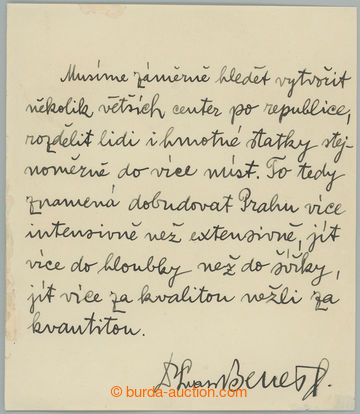 Musíme záměrně hledět vytvořit
několik větších center po republice,
rozdělit lidi i hmotné statky stej-
noměrně do více míst. To tedy
znamená dobudovat Prahu více
intensivně než extensivně, jít
více do hloubky než do šířky,
jít více za kvalitou nežli za
kvantitou.
Beneš
© burda-auction.com